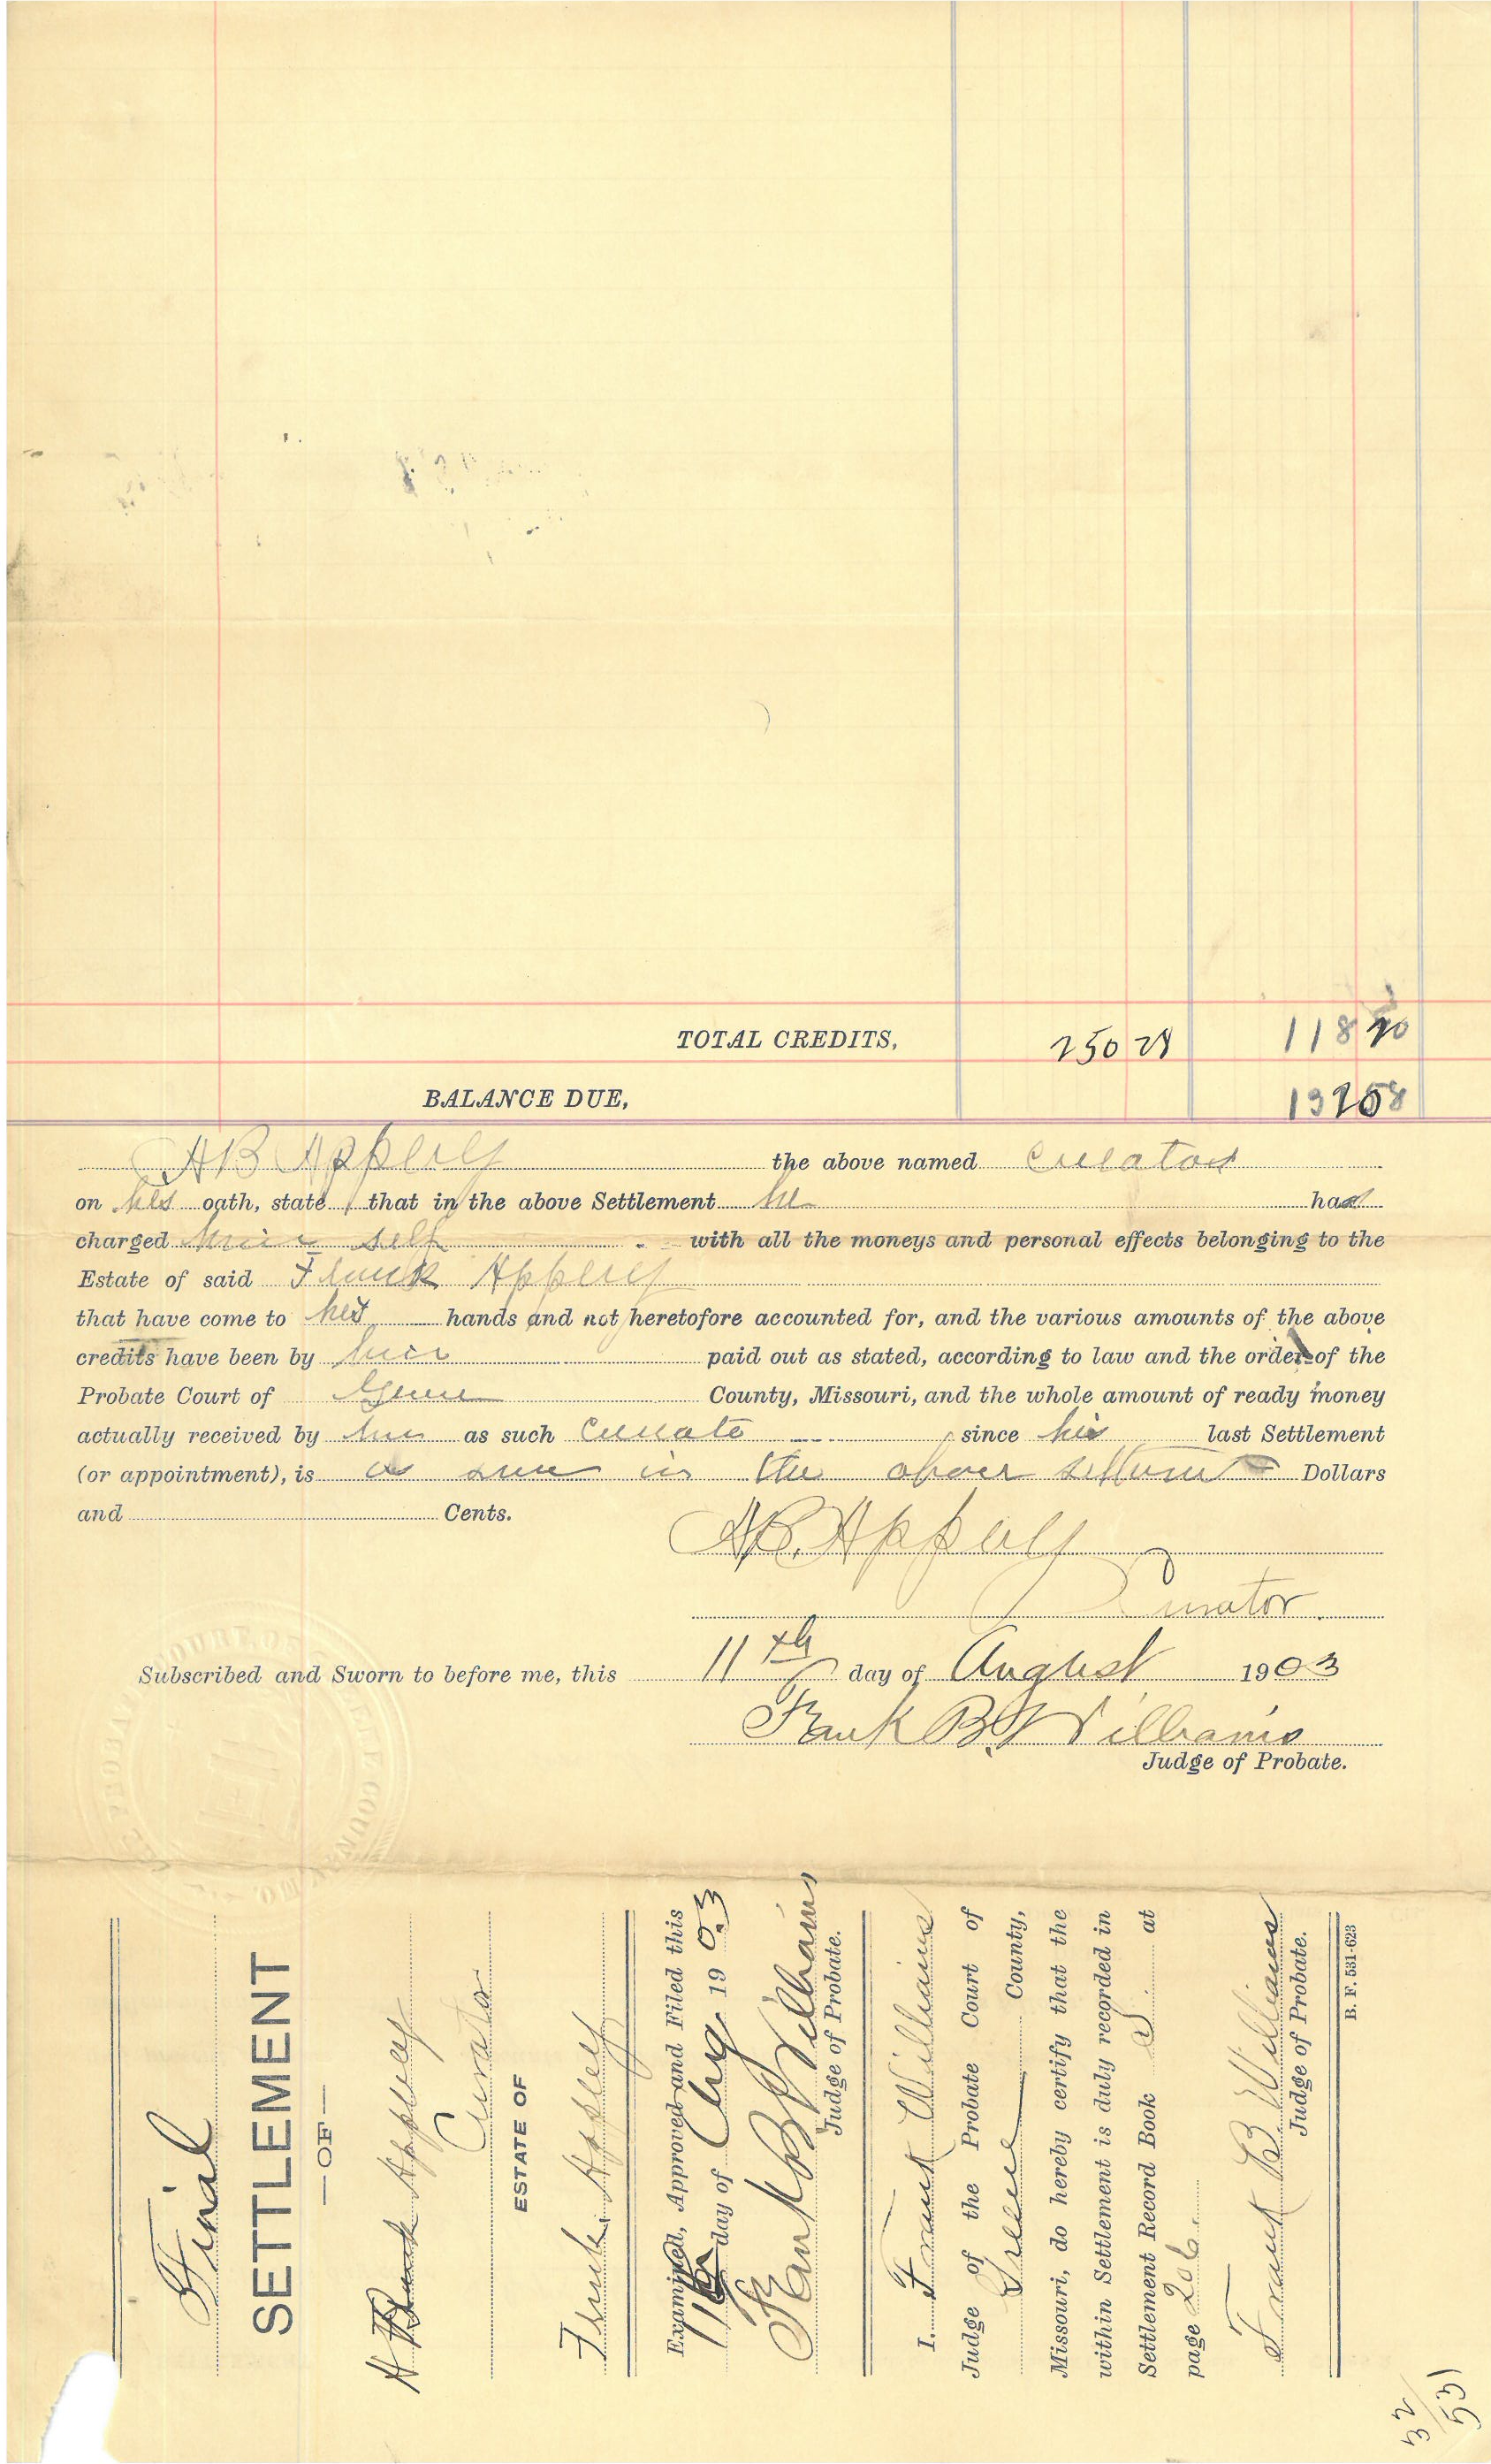 TOTAL CREDITS, 250 28 118 20
BALANCE DUE, 132 08
A B Appleby the above named Curator
on his oath, state, that in the above Settlement he has
charged him self with all the moneys and personal effects belonging to the
Estate of said Frank Appleby
that have come to his hands and not heretofore accounted for, and the various amounts of the above
credits have been by him paid out as stated, according to law and the order of the
Probate Court of Greene County, Missouri, and the whole amount of ready money
actually received by him as such Curato since his last Settlement
(or appointment), is as in the above Dollars
and Cents.
A B. Appleby
Curator.
Subscribed and Sworn to before me, this 11th day of August 1903
Frank B. Williams
Judge of Probate.
COURT OF GREENE COUNTY MO.
Final
SETTLEMENT
—OF—
Appleby
Curator
ESTATE OF
Frank Appleby
Examined, Approved and Filed this
11th day of Aug. 1903
Frank B Williams
Judge of Probate.
I, Frank Williams
Judge of the Probate Court of
Greene County,
Missouri, do hereby certify that the
within Settlement is duly recorded in
Settlement Record Book at
page 206.
Frank B. Williams
Judge of Probate.
B. F. 531-623
32
531